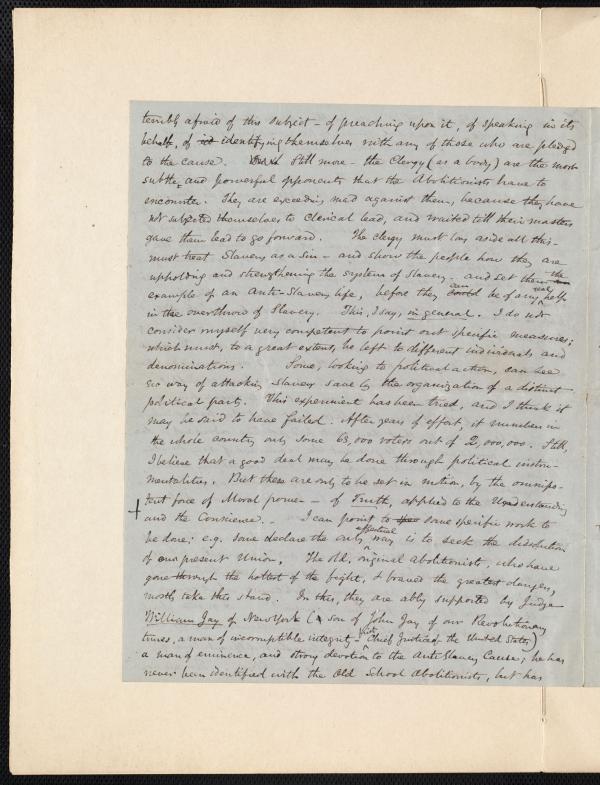 terribly afraid of this subject - of preaching upon it, of speaking in its
behalf, of identifying themselves with any of those who are pledged
to the cause. Still more - the Clergy (as a body) are the most
subtle, and powerful opponents that the Abolitionists have to
encounter. They are exceeding mad against them, because they have
not subjected themselves to clerical lead, and waited till their masters
gave them lead to go forward. The clergy must lay aside all this -
must treat Slavery as a sin - and show the people how they are
upholding and strengthening the system of slavery - and set them the
example of an Anti-Slavery life, before they can be of any real help
in the overthrow of Slavery. This, I say, in general. I do not
consider myself very competent to point out specific measures;
which must, to a great extent, be left to different individuals and
denominations. Some, looking to political action, can see
no way of attacking slavery save by the organization of a distinct
political party. This experiment has been tried, and I think it
may be said to have failed. After years of effort, it numbers in
the whole country only some 63,000 voters out of 2,000,000. Still,
I believe that a good deal may be done through political instru-
mentalities. But these are only to be set in motion, by the omnipo-
tent force of Moral power - of Truth, applied to the Understanding
and the Conscience. - I can point to some specific work to
be done; e.g. some declare the only effectual way is to seek the dissolution
of our present Union. The old, original abolitionists, who have
gone through the hottest of the fight, & braved the greatest dangers,
mostly take this stand. In this, they are ably supported by Judge
William Jay of New York (a son of John Jay of our Revolutionary
times, a man of incorruptible integrity - first Chief Justice of the United States)
a man of eminence, and strong devotion to the Anti Slavery Cause; he has
never been identified with the Old School Abolitionists, but has